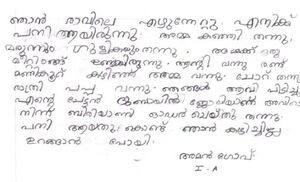 ഞാൻ രാവിലെ എഴുന്നേറ്റു. എനിക്ക്
പനി ആയിരുന്നു. അമ്മ കഞ്ഞി തന്നു,
മരുന്നും ഗുളികകളും തന്നു. അമ്മക്ക് ഒരു
മീറ്റിങ്ങ് ഉണ്ടായിരുന്നു. ആന്റി വന്നു രണ്ട്
മണിക്കൂർ കഴിഞ്ഞ് അമ്മ വന്നു. ചോറ് തന്നു
രാത്രി പപ്പ വന്നു. ഞങ്ങൾ ആവി പിടിച്ചു
എന്റെ ചേട്ടൻ ജോലിയാണ് അവിടെ
നിന്ന് ബിരിയാണി ഓഡർ ചെയ്തു തന്നു.
പനി ആയതു കൊണ്ട് ഞാൻ കഴിച്ചില്ല
ഉറങ്ങാൻ പോയി.
അമൻ ഗോപ്.
I - A